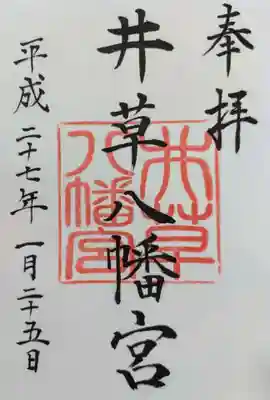 奉拝
井草八幡宮
井草八幡宮
平成二十七年一月二十五日